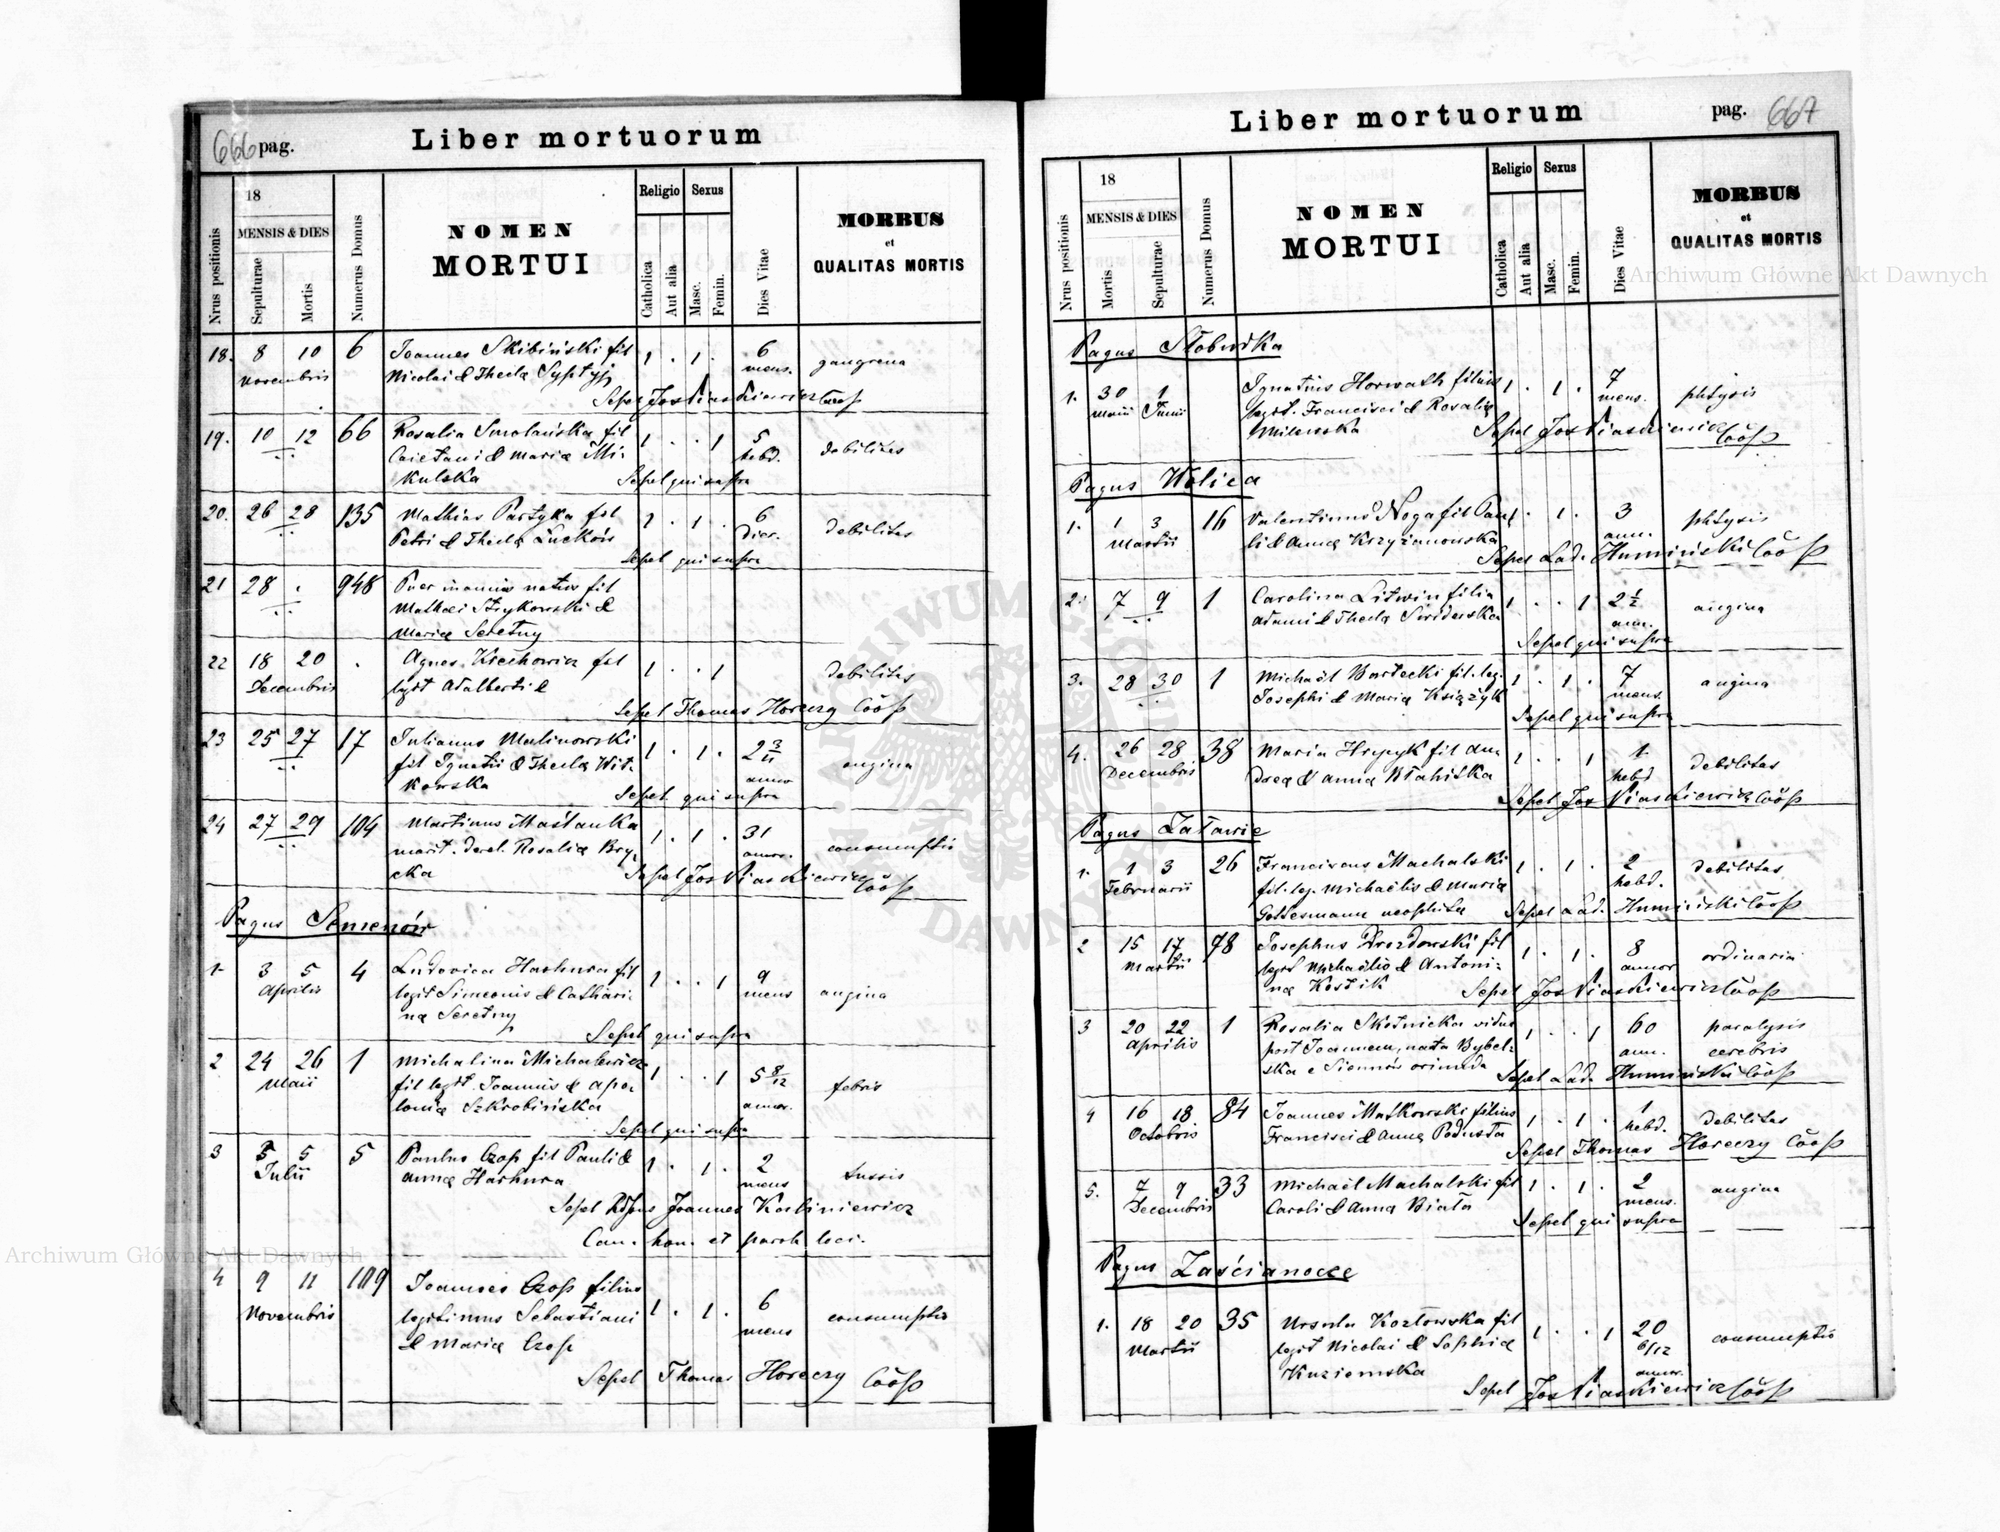 666 pag.
Liber mortuorum
Nrus positionis
18
MENSIS & DIES
Sepulturae
Mortis
Numerus Domus
NOMEN
MORTUI
Religio
Sexus
Catholica
Aut alia
Masc.
Femin.
Dies Vitae
MORBUS
et
QUALITAS MORTIS
18. 8 10 6 Joannes Skibiński fil 1 . 1 . 6 gangrena
Novembris Nicolai & Thecla mens.
Sepel Jos Piaskiewicz Coop
19. 10 12 66 Rosalia Smolańska fil 1 . . 1 5 debilitas
Caietani & Maria Mi- hebd.
kulska Sepel qui supra
20. 26 28 135 Mathias Partyka fil 1 . 1 . 6 debilitas
Petri & Thecla Łucków dier.
Sepel qui supra
21 28 . 948 Puer natus fil
Mathei Strykowski &
Maria Seretny
22 18 20 . Agnes Krechowicz fil 1 . . 1 debilitas
Decembris legit Adalberti &
Sepel Thomas Horeczy Coop
23 25 27 17 Julianus Malinowski 1 . 1 . 2 angina
fil Ignatii & Thecla Wit- annor
kowska Sepel qui supra
24 27 29 104 Martinus Maślanka 1 . 1 . 31 consumptio
marit. derel. Rosalia Bry- annor.
cka Sepel Jos Piaskiewicz Coop
Pagus Semenów
1 3 5 4 Ludovica Harhura fil 1 . . 1 9 angina
Aprilis legit Simeonis & Cathari- mens
na Seretny
Sepel qui supra
2 24 26 1 Michalina Michalewicz 1 . . 1 5 8/12 febris
Maii fil legit. Joannis & Apo- annor.
lonia Szkrobińska
Sepel qui supra
3 5 5 5 Paulus Czop fil Pauli & 1 . 1 . 2 tussis
Julii Anna Harhura mens
Sepel Joannes Korbiniewicz
Can. hon. et paroch loci.
4 9 11 109 Joannes Czop filius 1 . 1 . 6 consumptio
Novembris legitimus Sebastiani mens
& Maria Czop
Sepel Thomas Horeczy Coop
Liber mortuorum
pag. 667
Nrus positionis
18
MENSIS & DIES
Mortis
Sepulturae
Numerus Domus
NOMEN
MORTUI
Religio
Sexus
Catholica
Aut alia
Masc.
Femin.
Dies Vitae
MORBUS
et
QUALITAS MORTIS
Pagus Słobudka
1. 30 1 Ignatius Horwath filius 1 . 1 . 7 phtysis
Maii Junii legit. Francisci & Rosalia mens.
Milewska Sepel Jos Piaskiewicz Coop
Pagus Wolica
1. 1 3 16 Valentinus Noga fil Pau- 1 . 1 . 3 phtysis
Martii li & Anna Krzyżanowska ann.
Sepel Lad. Humiński Coop
2. 7 9 1 Carolina Litwin filia 1 . . 1 2 1/2 angina
Adami & Thecla Swiderska ann.
Sepel qui supra
3. 28 30 1 Michaël Bartecki fil. leg. 1 . 1 . 7 angina
Josephi & Maria Książyk mens.
Sepel qui supra
4. 26 28 38 Maria Hrycyk fil An- 1 . . 1 1 debilitas
Decembris drea & Anna hebd
Sepel Jos Piaskiewicz Coop
Pagus Załawie
1. 1 3 26 Franciscus Machalski 1 . 1 . 2 debilitas
Februarii fil. leg. Michaëlis & Maria hebd.
Gottesmann neophita Sepel Lad. Humiński Coop
2 15 17 78 Josephus Drozdowski fil 1 . 1 . 8 ordinaria
Martii legit Michaëlis & Antoni- annor
na Kostik Sepel Jos Piaskiewicz Coop
3 20 22 1 Rosalia Skotnicka vidua 1 . . 1 60 paralysis
Aprilis post Joannem, nata Bybel- ann. cerebris
ska e Siennów oriunda Sepel Lad. Humiński Coop
4 16 18 84 Joannes Matkowski filius 1 . 1 . 1 debilitas
Octobris Francisci & Anna Podusta hebd.
Sepel Thomas Horeczy Coop
5. 7 9 33 Michaël Machalski fil 1 . 1 . 2 angina
Decembris Caroli & Anna Biała mens.
Sepel qui supra
Pagus Zaścianocze
1. 18 20 35 Ursula Kozłowska fil 1 . . 1 20 consumptio
Martii legit Nicolai & Sophia 6/12
Kuziemska annor.
Sepel Jos Piaskiewicz Coop
Archiwum Główne Akt Dawnych
Archiwum Główne Akt Dawnych
ARCHIWUM GŁÓWNE AKT DAWNYCH